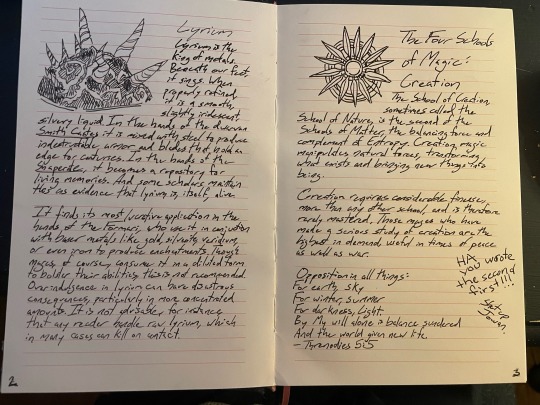 Lyrium
Lyrium is the
King of metals.
Beneath our feet,
it sings. When
properly refined,
it is a smooth,
slightly iridescent
silvery liquid. In the hands of the dwarven
Smith Castes it is mixed with steel to produce
indestructable armor and blades that hold an
edge for centuries. In the hands of the
Shaperate, it becomes a repository for
living memories. And some scholars maintain
this as evidence that lyrium is, itself, alive.
It finds its most lucrative application in the
hands of the Formari, who use it, in conjunction
with baser metals like gold, silverite, veridium,
or even iron to produce enchantments. Though
mages, of course, consume it in a diluted form
to bolster their abilities this is not recommended.
Over indulgence in lyrium can have disastrous
consequences, particularly in more concentrated
amounts. It is not advisable for instance
that any reader handle raw lyrium, which
in many cases can kill on contact.
2
The Four Schools
of Magic:
Creation
The School of Creation,
sometimes called the
School of Nature, is the second of the
Schools of Matter, the balancing force and
complement of Entropy. Creation magic
manipulates natural forces, transforming
what exists and bringing new things into
being.
Creation requires considerable finesse,
more than any other school, and is therefore
rarely mastered. Those mages who have
made a serious study of creation are the
highest in demand, useful in times of peace
as well as war.
Opposition in all things:
For earth, sky
For winter, summer
For darkness, Light.
By My will alone is balance sundered
And the world given new life.
- Threnodies 5:5
HA,
you wrote
the second
first!!!
shut up
3